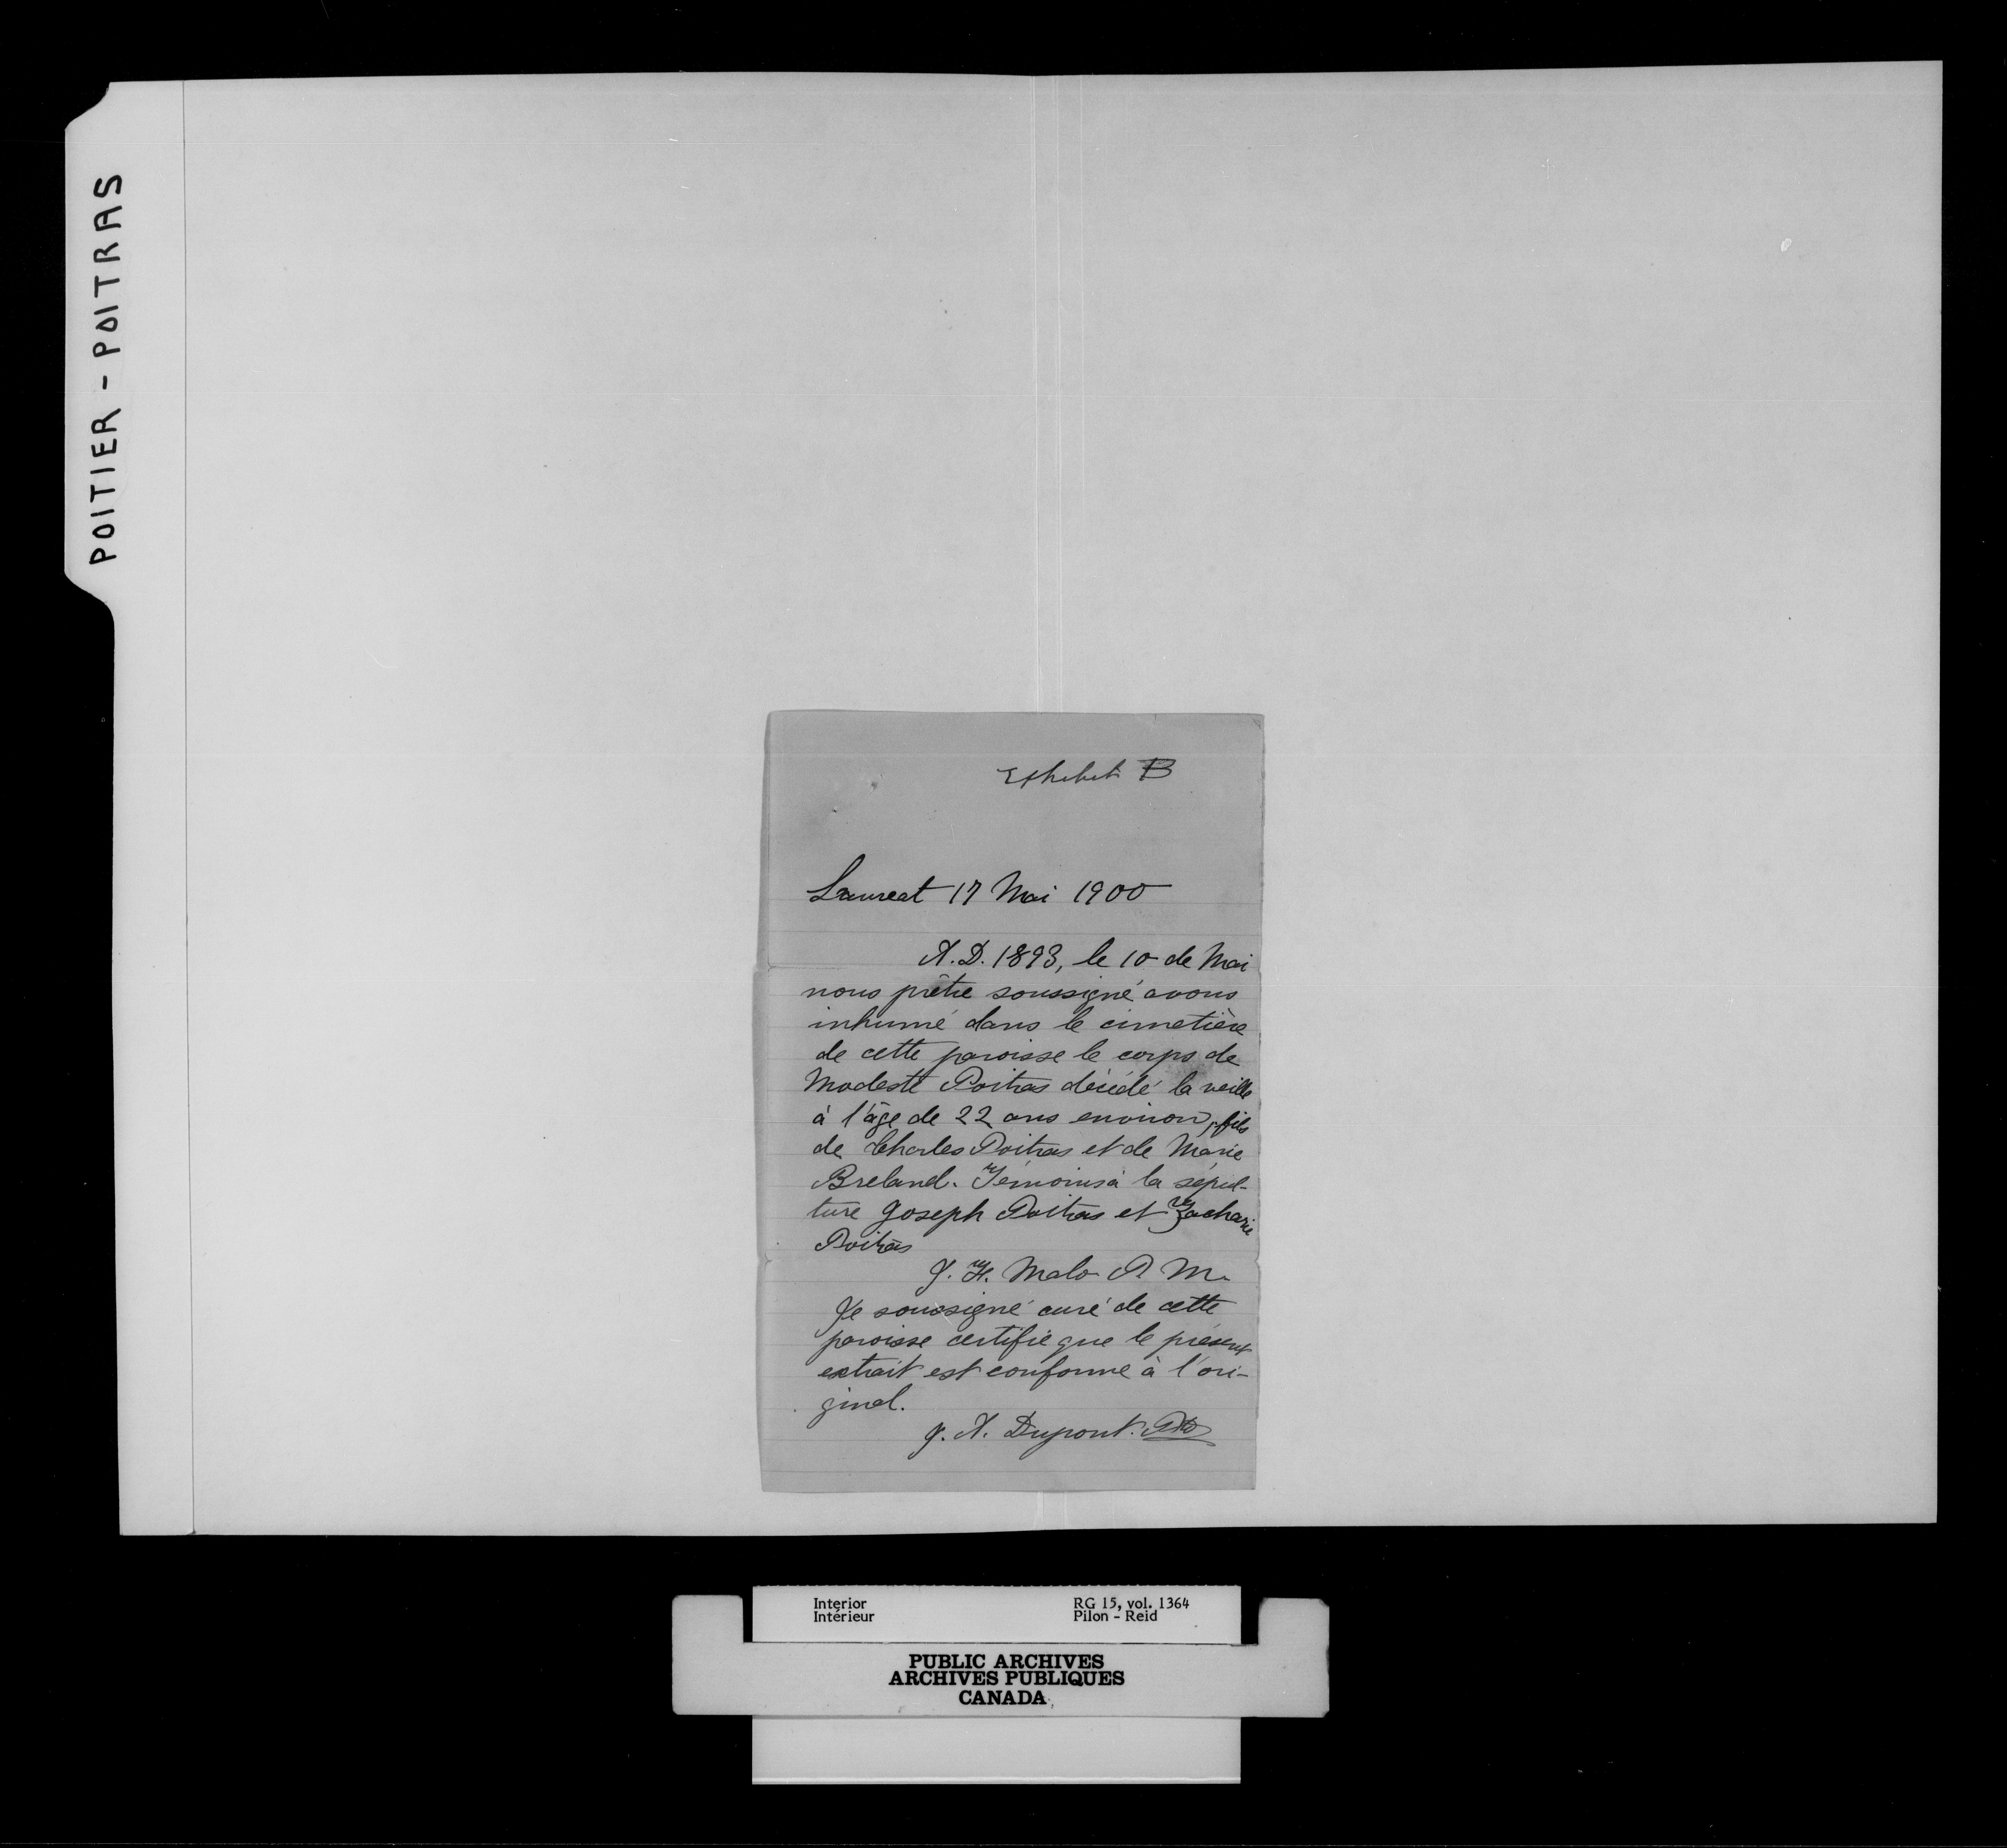 POITIER - POITRAS
Exhibit B
Laureat 17 Mai 1900
A.D. 1893, le 10 de Mai
nous prêtre soussigné avons
inhumé dans le cimetière
de cette paroisse le corps de
Modeste Poitras décédé la veille
à l'âge de 22 ans environ, fils
de Charles Poitras et de Marie
Breland. Témoins à la sépul-
ture Joseph Poitras et Zacharie
Poitras
J. H. Malo P. M.
Je soussigné curé de cette
paroisse certifie que le présent
extrait est conforme à l'ori-
ginal.
J. A. Dupont. Ptre
Interior
Intérieur
RG 15, vol. 1364
Pilon - Reid
PUBLIC ARCHIVES
ARCHIVES PUBLIQUES
CANADA